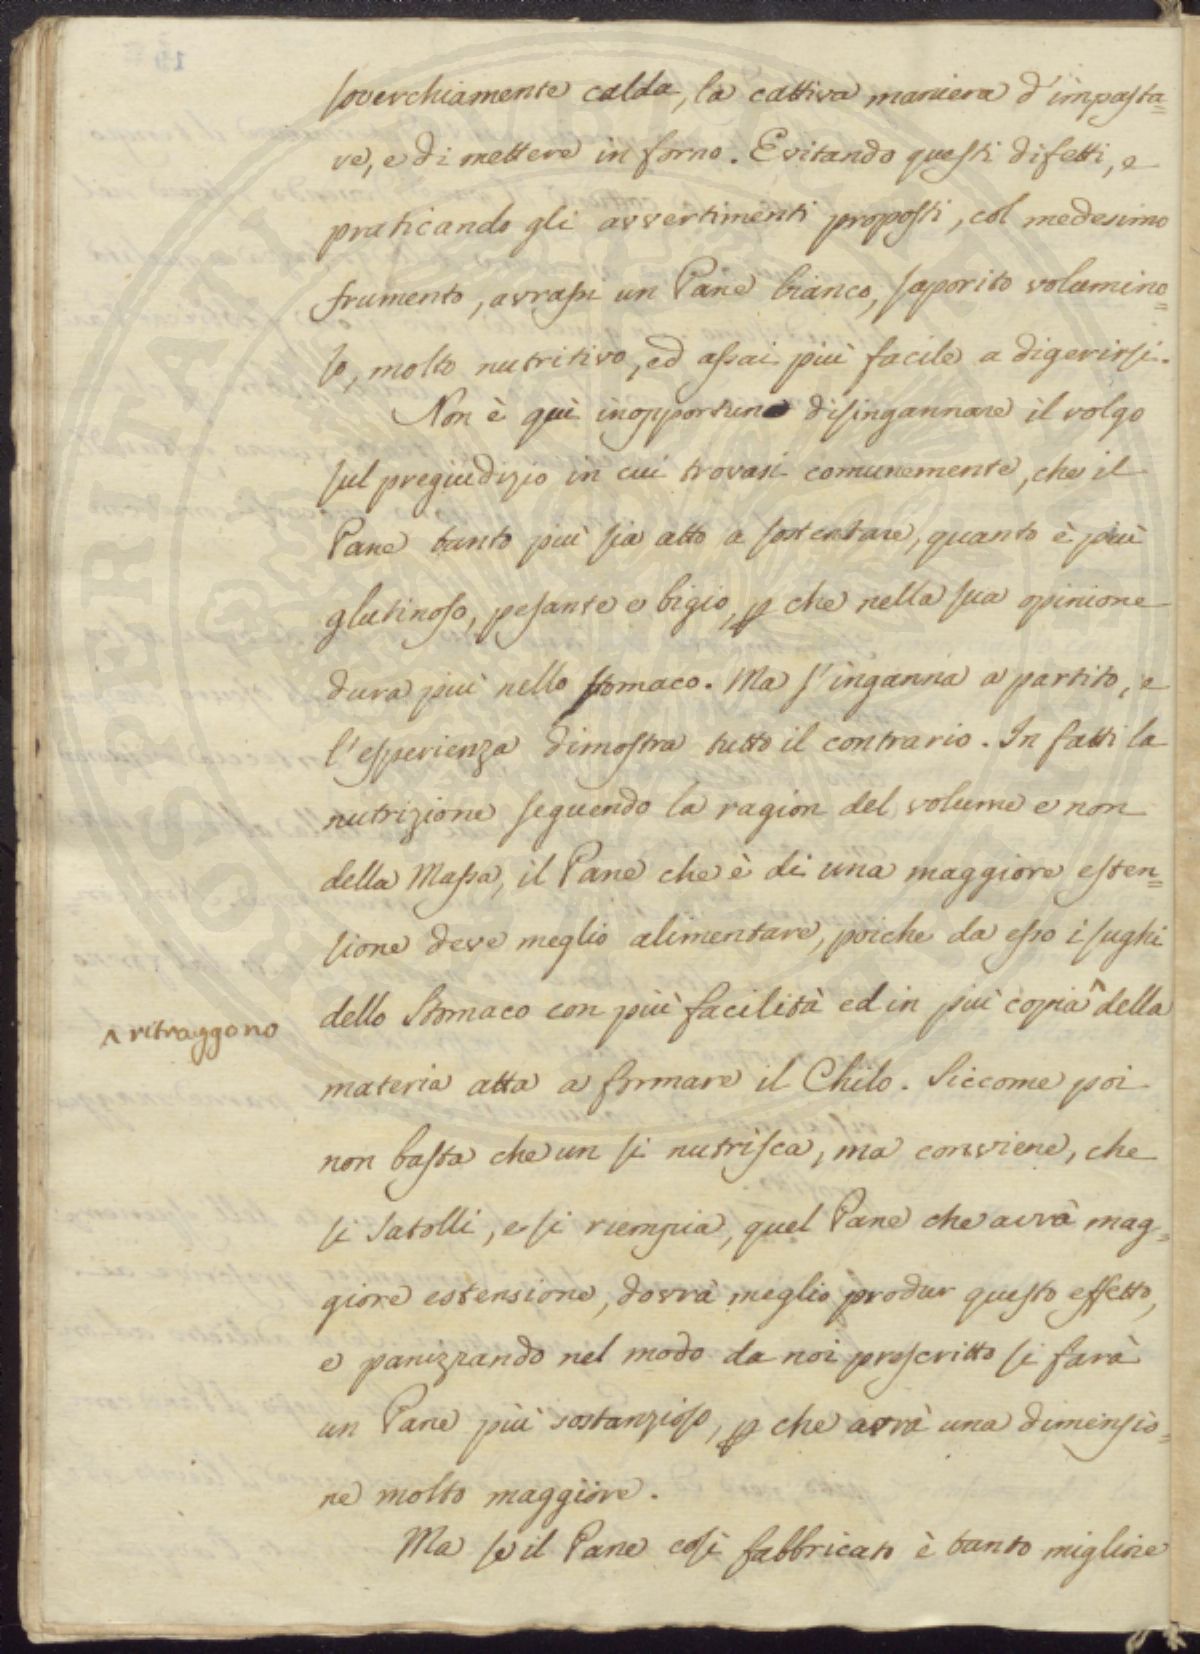 soverchiamente calda, la cattiva maniera d'impasta=
re, e di mettere in forno. Evitando questi difetti, e
praticando gli avvertimenti proposti, col medesimo
frumento, avrassi un Pane bianco, saporito volumino=
so, molto nutritivo, ed assai più facile a digerirsi.
Non è quì inopportuno disingannare il volgo
sul pregiudizio in cui trovasi comunemente, che il
Pane tanto più sia atto a sostentare, quanto è più
glutinoso, pesante e bigio, p che nella sua opinione
dura più nello stomaco. Ma s'inganna a partito, e
l'esperienza dimostra tutto il contrario. In fatti la
nutrizione seguendo la ragion del volume e non
della Massa, il Pane che è di una maggiore esten=
sione deve meglio alimentare, poiche da esso i sughi
dello Stomaco con più facilità ed in più copia ^ della
^ ritraggono
materia atta a formare il Chilo. Siccome poi
non basta che un si nutrisca, ma conviene, che
si satolli, e si riempia, quel Pane che avrà mag=
giore estensione, dovrà meglio produr questo effetto,
e panizzando nel modo da noi prescritto si farà
un Pane più sostanzioso, p che avrà una dimensio=
ne molto maggiore.
Ma se il Pane così fabbricato è tanto migliore
PROSPERITATI PUBLICAE